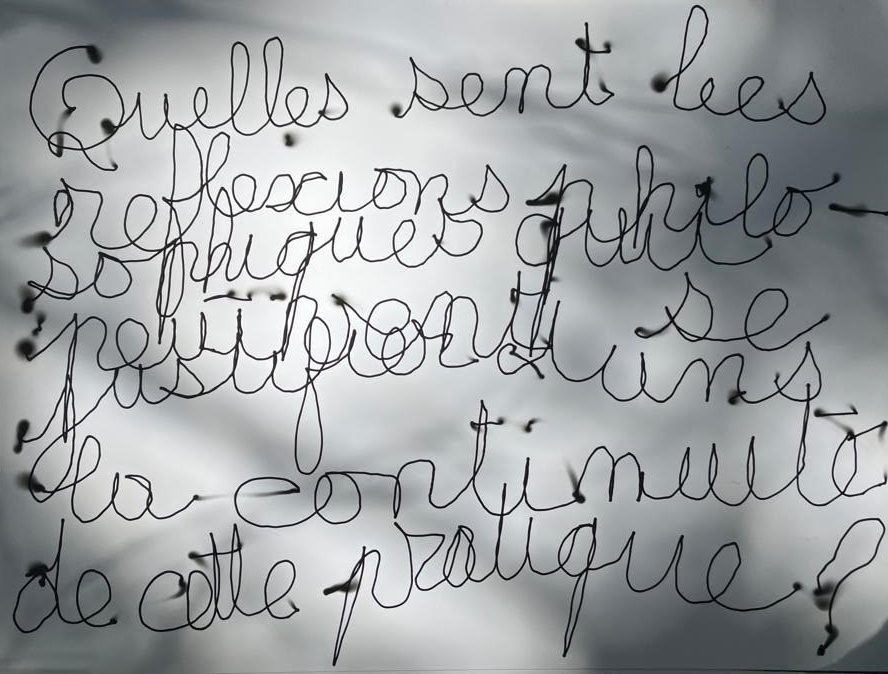 Quelles sent lees
reflexions philo-
sophiques qui
se
la continuité
de cette pratique ?